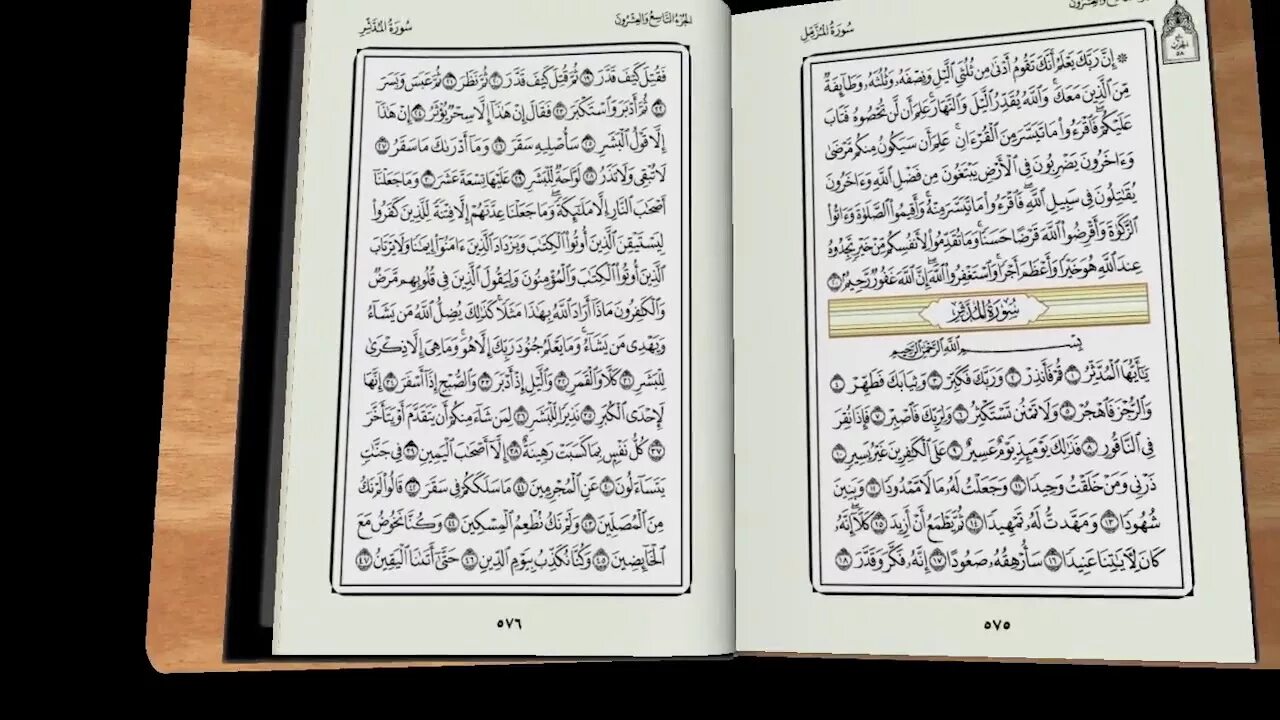 سُورَةُ المُزَّمِّلِ
۞ إِنَّ رَبَّكَ يَعْلَمُ أَنَّكَ تَقُومُ أَدْنَىٰ مِن ثُلُثَيِ ٱلَّيْلِ وَنِصْفَهُۥ وَثُلُثَهُۥ وَطَآئِفَةٌ
مِّنَ ٱلَّذِينَ مَعَكَ ۚ وَٱللَّهُ يُقَدِّرُ ٱلَّيْلَ وَٱلنَّهَارَ ۚ عَلِمَ أَن لَّن تُحْصُوهُ فَتَابَ
عَلَيْكُمْ ۖ فَٱقْرَءُوا۟ مَا تَيَسَّرَ مِنَ ٱلْقُرْءَانِ ۚ عَلِمَ أَن سَيَكُونُ مِنكُم مَّرْضَىٰ
وَءَاخَرُونَ يَضْرِبُونَ فِى ٱلْأَرْضِ يَبْتَغُونَ مِن فَضْلِ ٱللَّهِ وَءَاخَرُونَ
يُقَٰتِلُونَ فِى سَبِيلِ ٱللَّهِ ۖ فَٱقْرَءُوا۟ مَا تَيَسَّرَ مِنْهُ ۚ وَأَقِيمُوا۟ ٱلصَّلَوٰةَ وَءَاتُوا۟
ٱلزَّكَوٰةَ وَأَقْرِضُوا۟ ٱللَّهَ قَرْضًا حَسَنًا ۚ وَمَا تُقَدِّمُوا۟ لِأَنفُسِكُم مِّنْ خَيْرٍ تَجِدُوهُ
عِندَ ٱللَّهِ هُوَ خَيْرًا وَأَعْظَمَ أَجْرًا ۚ وَٱسْتَغْفِرُوا۟ ٱللَّهَ ۖ إِنَّ ٱللَّهَ غَفُورٌ رَّحِيمٌۢ ٢٠
سُورَةُ المُدَّثِّرِ
بِسْمِ ٱللَّهِ ٱلرَّحْمَٰنِ ٱلرَّحِيمِ
يَٰٓأَيُّهَا ٱلْمُدَّثِّرُ ١ قُمْ فَأَنذِرْ ٢ وَرَبَّكَ فَكَبِّرْ ٣ وَثِيَابَكَ فَطَهِّرْ ٤
وَٱلرُّجْزَ فَٱهْجُرْ ٥ وَلَا تَمْنُن تَسْتَكْثِرُ ٦ وَلِرَبِّكَ فَٱصْبِرْ ٧ فَإِذَا نُقِرَ
فِى ٱلنَّاقُورِ ٨ فَذَٰلِكَ يَوْمَئِذٍ يَوْمٌ عَسِيرٌ ٩ عَلَى ٱلْكَٰفِرِينَ غَيْرُ يَسِيرٍ ١٠
ذَرْنِى وَمَنْ خَلَقْتُ وَحِيدًا ١١ وَجَعَلْتُ لَهُۥ مَالًا مَّمْدُودًا ١٢ وَبَنِينَ
شُهُودًا ١٣ وَمَهَّدتُّ لَهُۥ تَمْهِيدًا ١٤ ثُمَّ يَطْمَعُ أَنْ أَزِيدَ ١٥ كَلَّآ ۖ إِنَّهُۥ
كَانَ لِءَايَٰتِنَا عَنِيدًا ١٦ سَأُرْهِقُهُۥ صَعُودًا ١٧ إِنَّهُۥ فَكَّرَ وَقَدَّرَ ١٨
٥٧٥
الجُزْءُ التَّاسِعُ وَالعِشْرُونَ
سُورَةُ المُدَّثِّرِ
فَقُتِلَ كَيْفَ قَدَّرَ ١٩ ثُمَّ قُتِلَ كَيْفَ قَدَّرَ ٢٠ ثُمَّ نَظَرَ ٢١ ثُمَّ عَبَسَ وَبَسَرَ
٢٢ ثُمَّ أَدْبَرَ وَٱسْتَكْبَرَ ٢٣ فَقَالَ إِنْ هَٰذَآ إِلَّا سِحْرٌ يُؤْثَرُ ٢٤ إِنْ هَٰذَآ
إِلَّا قَوْلُ ٱلْبَشَرِ ٢٥ سَأُصْلِيهِ سَقَرَ ٢٦ وَمَآ أَدْرَىٰكَ مَا سَقَرُ ٢٧
لَا تُبْقِى وَلَا تَذَرُ ٢٨ لَوَّاحَةٌ لِّلْبَشَرِ ٢٩ عَلَيْهَا تِسْعَةَ عَشَرَ ٣٠ وَمَا جَعَلْنَآ
أَصْحَٰبَ ٱلنَّارِ إِلَّا مَلَٰٓئِكَةً ۙ وَمَا جَعَلْنَا عِدَّتَهُمْ إِلَّا فِتْنَةً لِّلَّذِينَ كَفَرُوا۟
لِيَسْتَيْقِنَ ٱلَّذِينَ أُوتُوا۟ ٱلْكِتَٰبَ وَيَزْدَادَ ٱلَّذِينَ ءَامَنُوٓا۟ إِيمَٰنًا ۙ وَلَا يَرْتَابَ
ٱلَّذِينَ أُوتُوا۟ ٱلْكِتَٰبَ وَٱلْمُؤْمِنُونَ ۙ وَلِيَقُولَ ٱلَّذِينَ فِى قُلُوبِهِم مَّرَضٌ
وَٱلْكَٰفِرُونَ مَاذَآ أَرَادَ ٱللَّهُ بِهَٰذَا مَثَلًا ۚ كَذَٰلِكَ يُضِلُّ ٱللَّهُ مَن يَشَآءُ
وَيَهْدِى مَن يَشَآءُ ۚ وَمَا يَعْلَمُ جُنُودَ رَبِّكَ إِلَّا هُوَ ۚ وَمَا هِىَ إِلَّا ذِكْرَىٰ
لِلْبَشَرِ ٣١ كَلَّا وَٱلْقَمَرِ ٣٢ وَٱلَّيْلِ إِذْ أَدْبَرَ ٣٣ وَٱلصُّبْحِ إِذَآ أَسْفَرَ ٣٤ إِنَّهَا
لَإِحْدَى ٱلْكُبَرِ ٣٥ نَذِيرًا لِّلْبَشَرِ ٣٦ لِمَن شَآءَ مِنكُمْ أَن يَتَقَدَّمَ أَوْ يَتَأَخَّرَ
٣٧ كُلُّ نَفْسٍۭ بِمَا كَسَبَتْ رَهِينَةٌ ٣٨ إِلَّآ أَصْحَٰبَ ٱلْيَمِينِ ٣٩ فِى جَنَّٰتٍ
يَتَسَآءَلُونَ ٤٠ عَنِ ٱلْمُجْرِمِينَ ٤١ مَا سَلَكَكُمْ فِى سَقَرَ ٤٢ قَالُوا۟ لَمْ نَكُ
مِنَ ٱلْمُصَلِّينَ ٤٣ وَلَمْ نَكُ نُطْعِمُ ٱلْمِسْكِينَ ٤٤ وَكُنَّا نَخُوضُ مَعَ
ٱلْخَآئِضِينَ ٤٥ وَكُنَّا نُكَذِّبُ بِيَوْمِ ٱلدِّينِ ٤٦ حَتَّىٰٓ أَتَىٰنَا ٱلْيَقِينُ ٤٧
٥٧٦